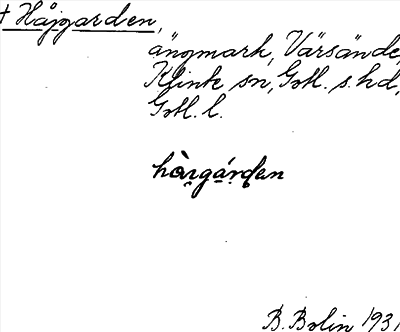 † Håjgarden,
ängmark, Värsände,
Klinte sn, Gotl. s. hd,
Gotl. l.
hàrgárden
B. Bolin 1931